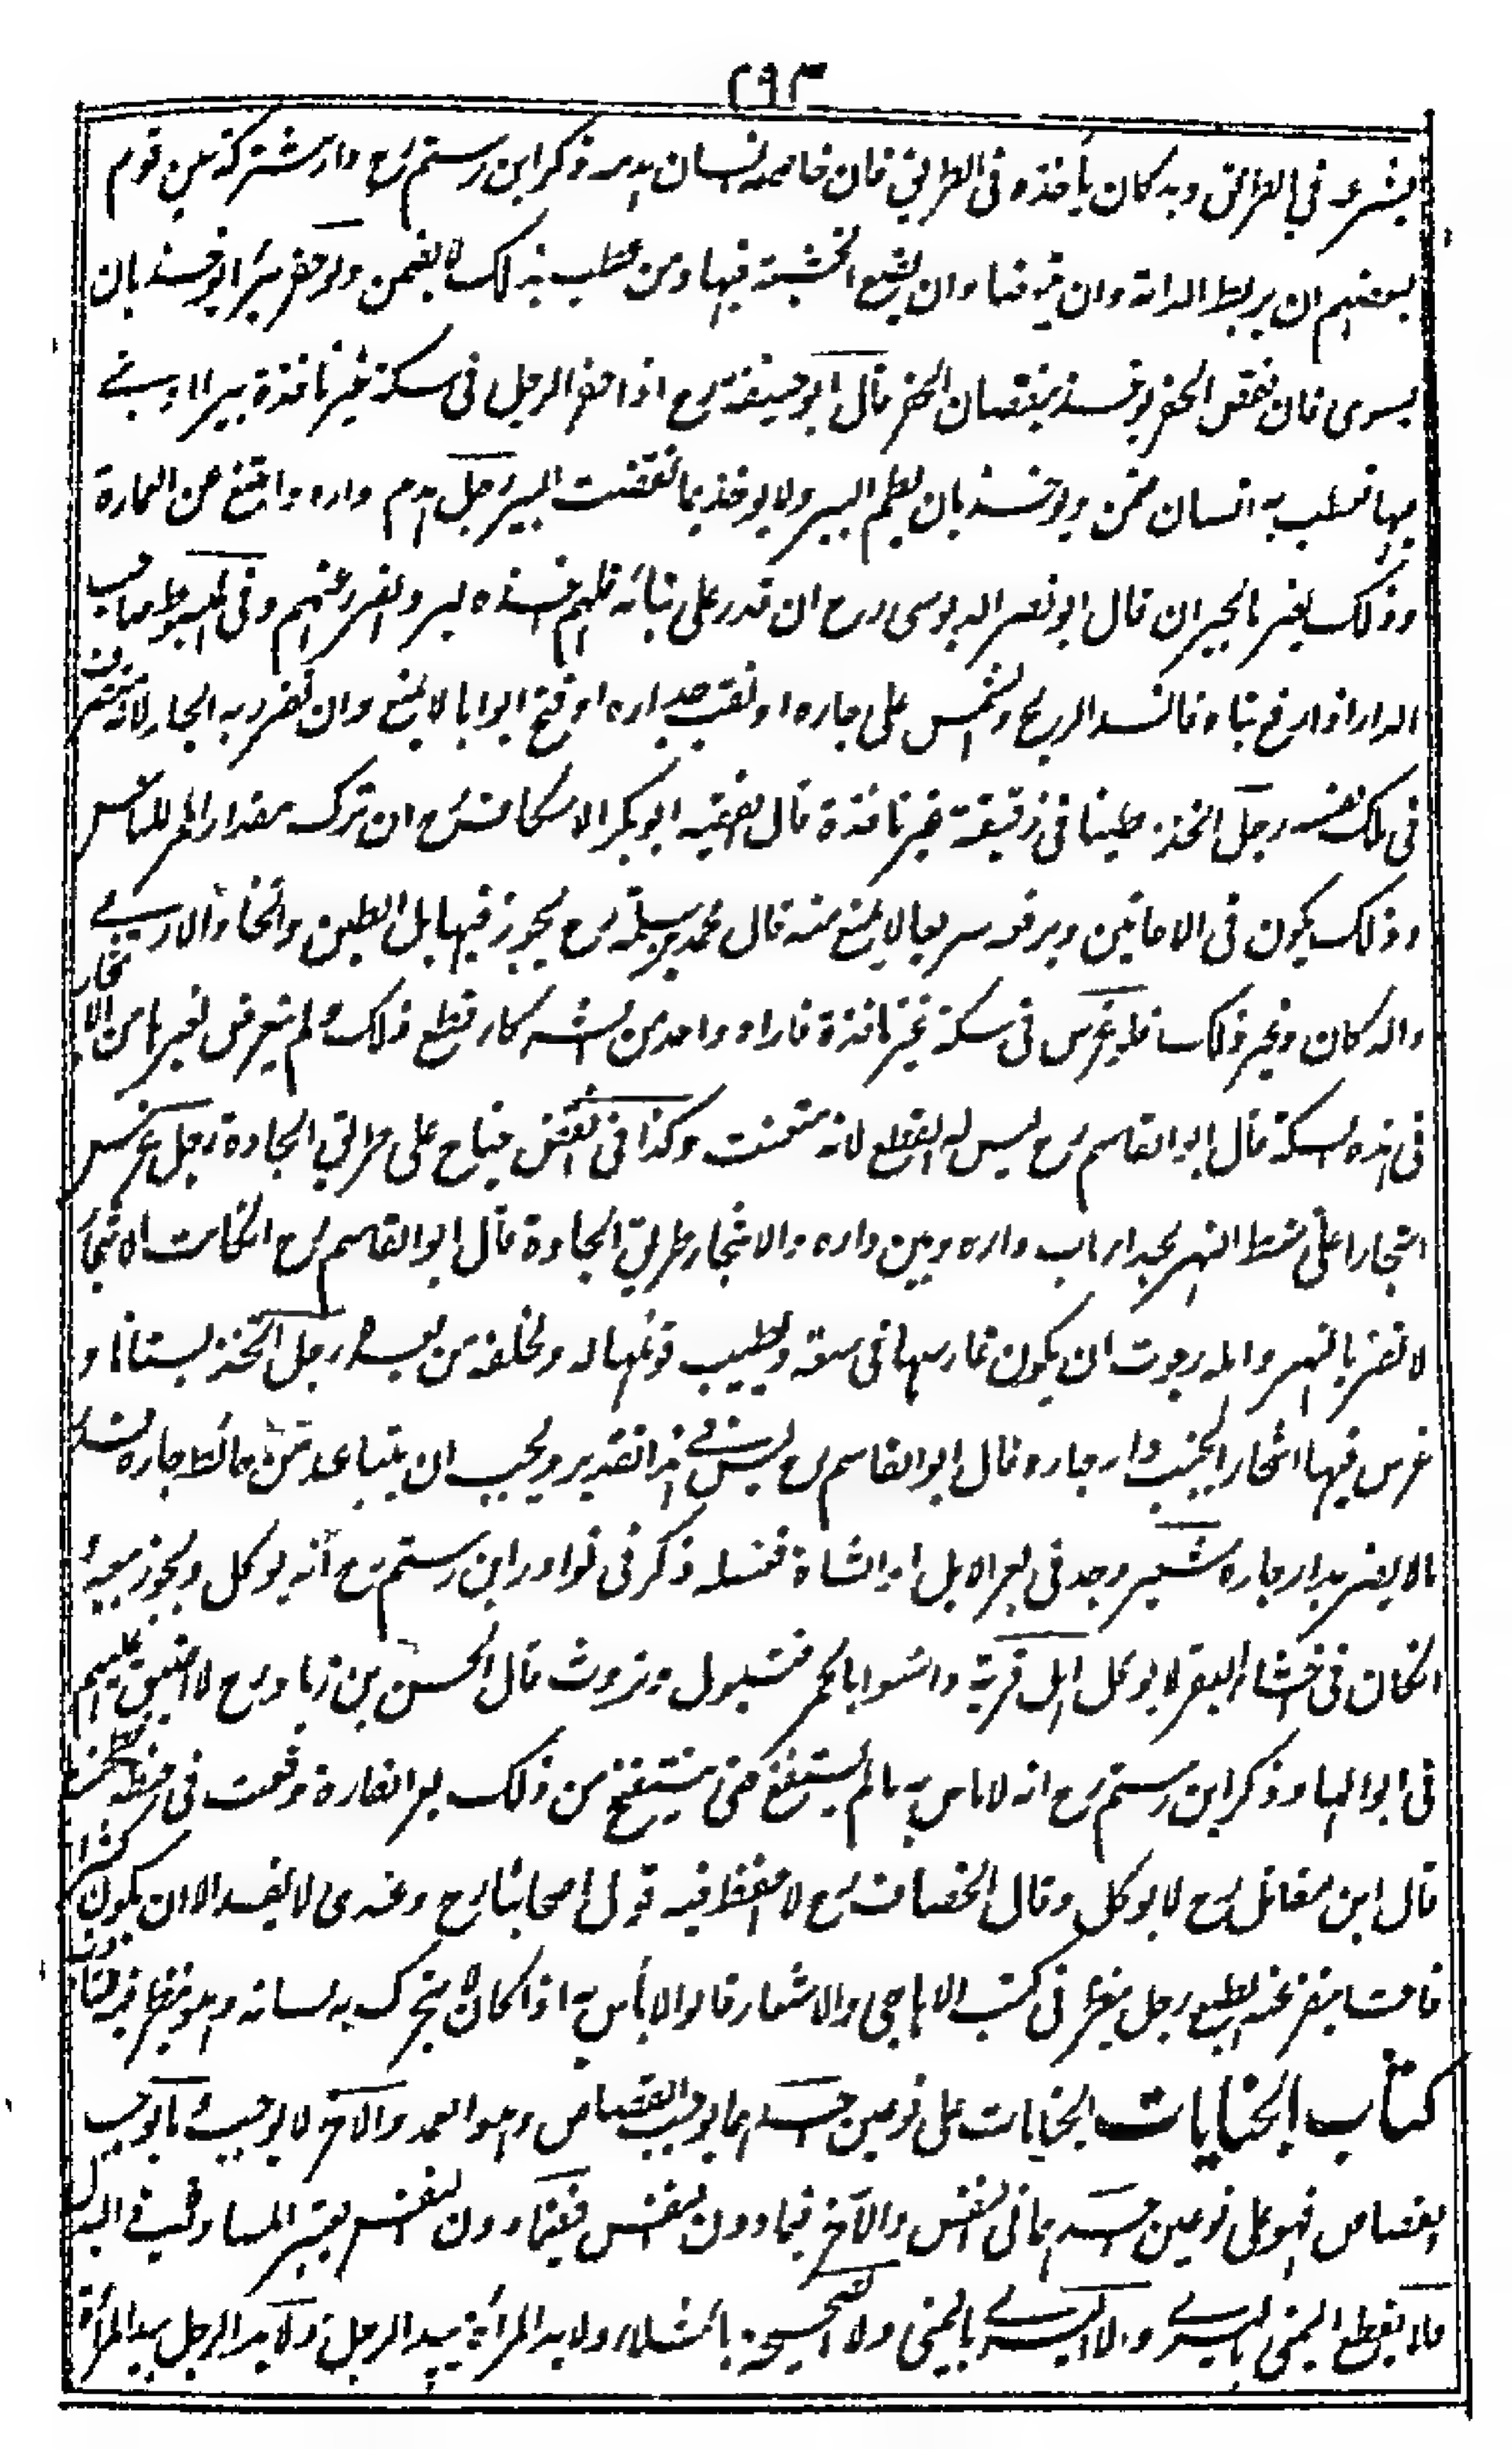 ٢٩٣
يشرعه في الطريق وبه كان يأخذه في الطريق فان خاصمه انسان هدمه ذكر ابن رستم رح دار مشتركة بين قوم
لبعضهم ان يربط الدابة وان يتوضأ وان يضع الخشبة فيها ومن عطب بذلك لا يضمن ولو حفر بيرا يوخذ بان
يسوى فان نقض الحفر يوخذ بنقصان الحفر قال ابو حنيفة رح اذا حفر الرجل في سكة غير نافذة بيرا او بنى
فيها فعطب به انسان ضمن ويوخذ بان يطم البير ولا يوخذ بما نقضت البير رجل هدم داره وامتنع عن العمارة
وذلك يضر بالجيران قال ابو نصر الدبوسى رح ان قدر على بنائه فلهم اخذه ليرد الضرر عنهم وفي المبسوط صاحب
الدار اذا رفع بناء فانسد الريح والشمس على جاره او نقب جداره او فتح ابوابا لا يمنع وان تضرر به الجار لانه متصرف
في ملك نفسه رجل اتخذ طينا في زقيقة غير نافذة قال الفقيه ابو بكر الاسكاف رح ان ترك مقدار الممر للناس
وذلك يكون في الاحايين ويرفعه سريعا لا يمنع منه قال محمد بن سلمة رح يجوز فيها بل الطين واتخاذ الارى
والدكان وغير ذلك فلو غرس في سكة غير نافذة فاراد واحد من الشركاء قطع ذلك ولم يتعرض لغيرها من الاشجار
في هذه السكة قال ابو القاسم رح ليس له القطع لانه متعنت وكذا في نقض جناح على طريق الجادة رجل غرس
اشجارا على شط النهر بجدار باب داره وبين داره والاشجار طريق الجادة قال ابو القاسم رح ان كانت الاشجار
لا تضر بالنهر والمه رجوت ان يكون غارسها في سعة ويطيب قوتها له ولخلفه من بعده رجل اتخذ بستانا و
غرس فيها اشجارا بجنب دار جاره قال ابو القاسم رح ليس في هذا تقدير ويجب ان يتباعد من حائط جاره قدر
ما لا يضر بدار جاره شعير وجد في بعر الابل او الشاة فغسله ذكر في نوادر ابن رستم رح انه يوكل ويجوز بيعه و
ان كان في خثاء البقر لا يوكل اهل قرية داسوا بالحمر فتبول وتروث قال الحسن بن زياد رح لا اضيق عليهم
في ابوالها وذكر ابن رستم رح انه لا باس به ما لم يستنقع حتى ينتفخ من ذلك بعر الفارة وقعت في حنطة فطحنت
قال ابن مقاتل رح لا يوكل وقال الخصاف رح لا احفظ فيه قول اصحابنا رح وعندى لا يفسد الا ان يكون كثيرا
فاحشا ينفر عنه الطبع رجل ينظر في كتب الاهاجى والاشعار قالوا لا بأس به اذا كان لا يتحرك به لسانه وهو ينظر فيها
كتاب الجنايات الجنايات على نوعين احدهما يوجب القصاص وهو العمد والآخر لا يوجب وما يوجب
القصاص فهو على نوعين احدهما في النفس والآخر فيما دون النفس ففيما دون النفس يعتبر المساوات في البدل
فلا يقطع اليمنى باليسرى ولا اليسرى باليمنى ولا الصحيحة بالشلاء ولا يد المرأة بيد الرجل ولا يد الرجل بيد المرأة